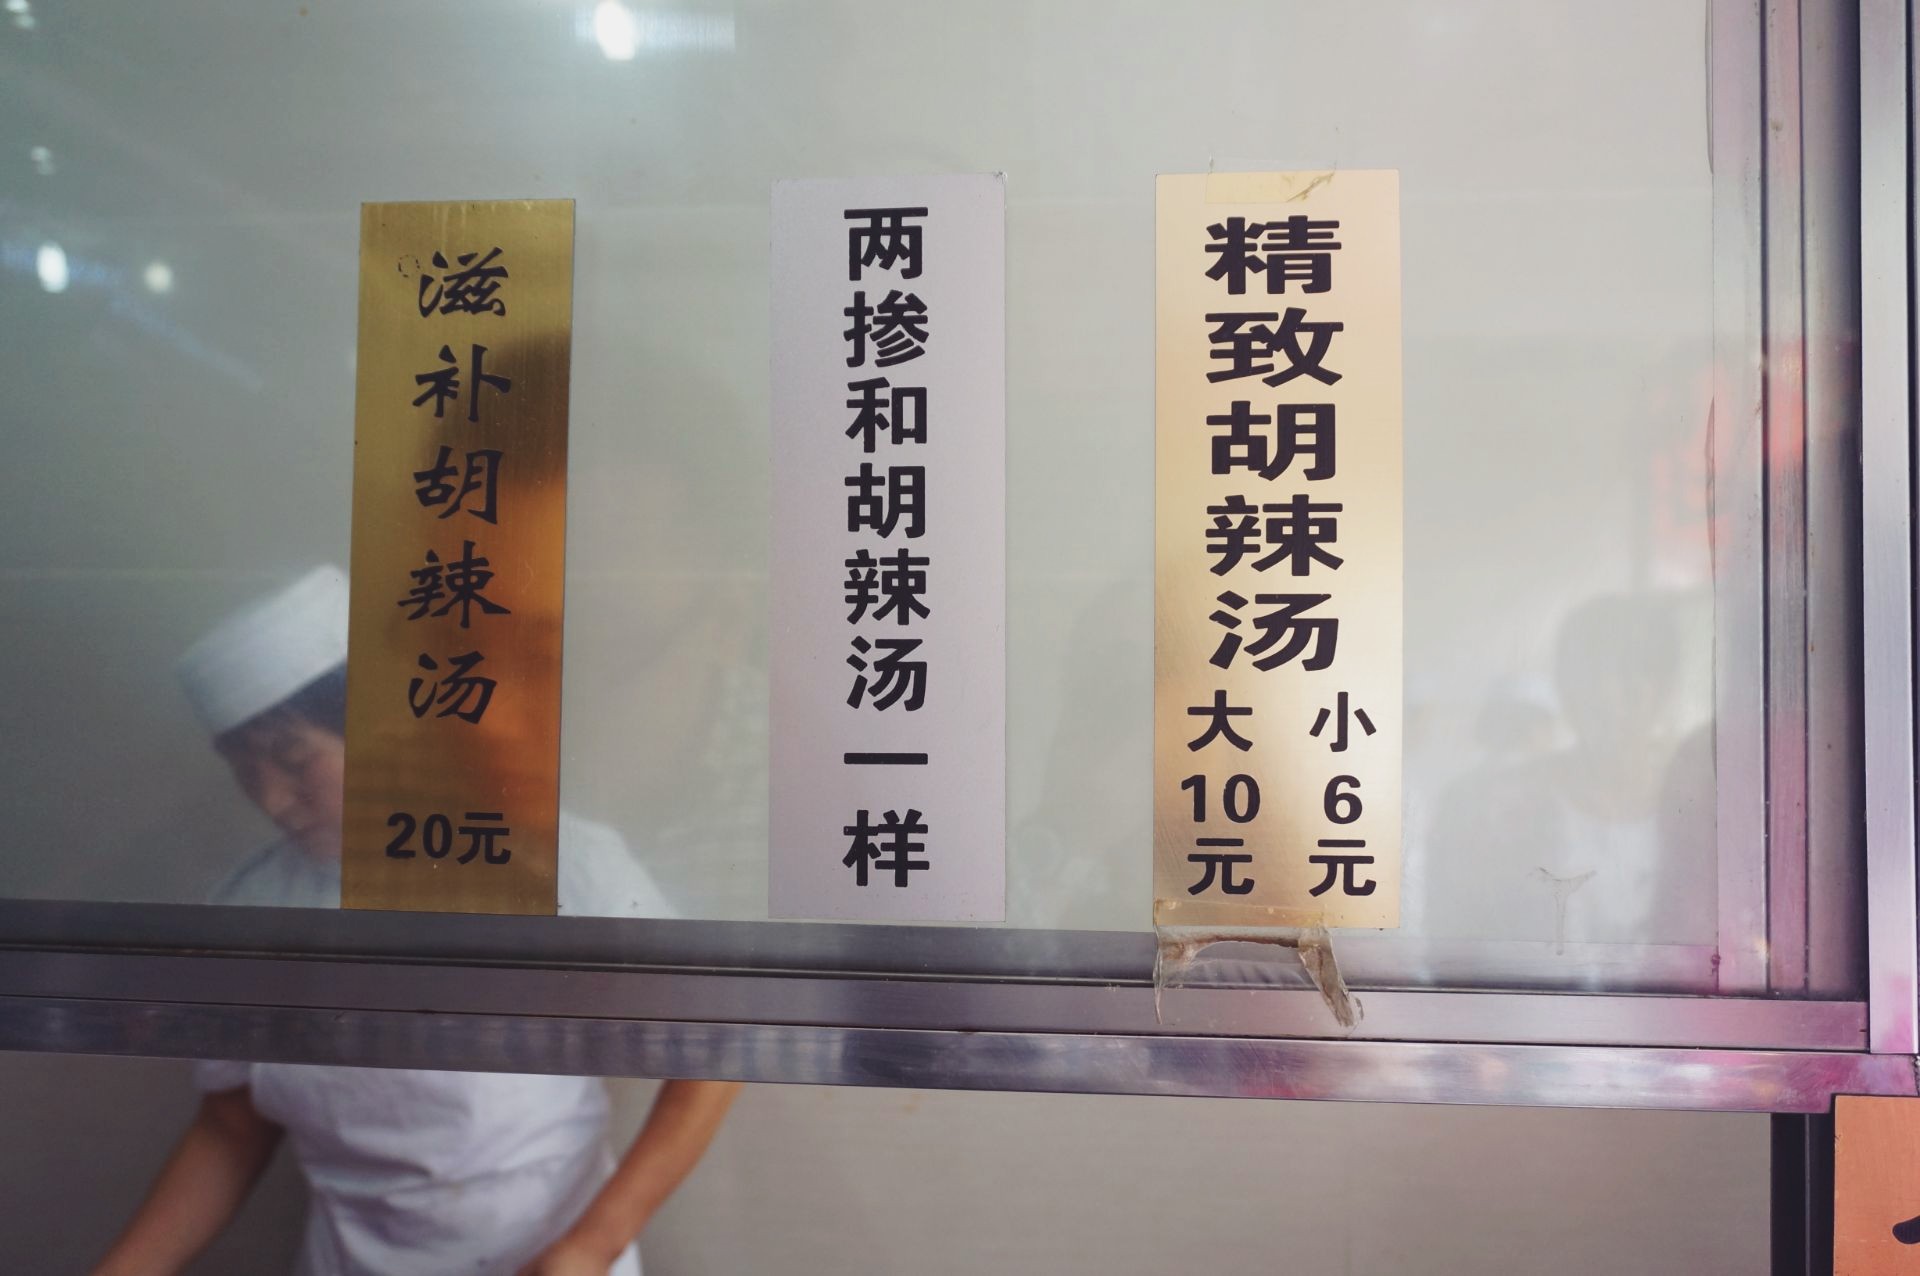 滋补胡辣汤
20元
两掺和胡辣汤一样
精致胡辣汤
大 小
10 6
元 元